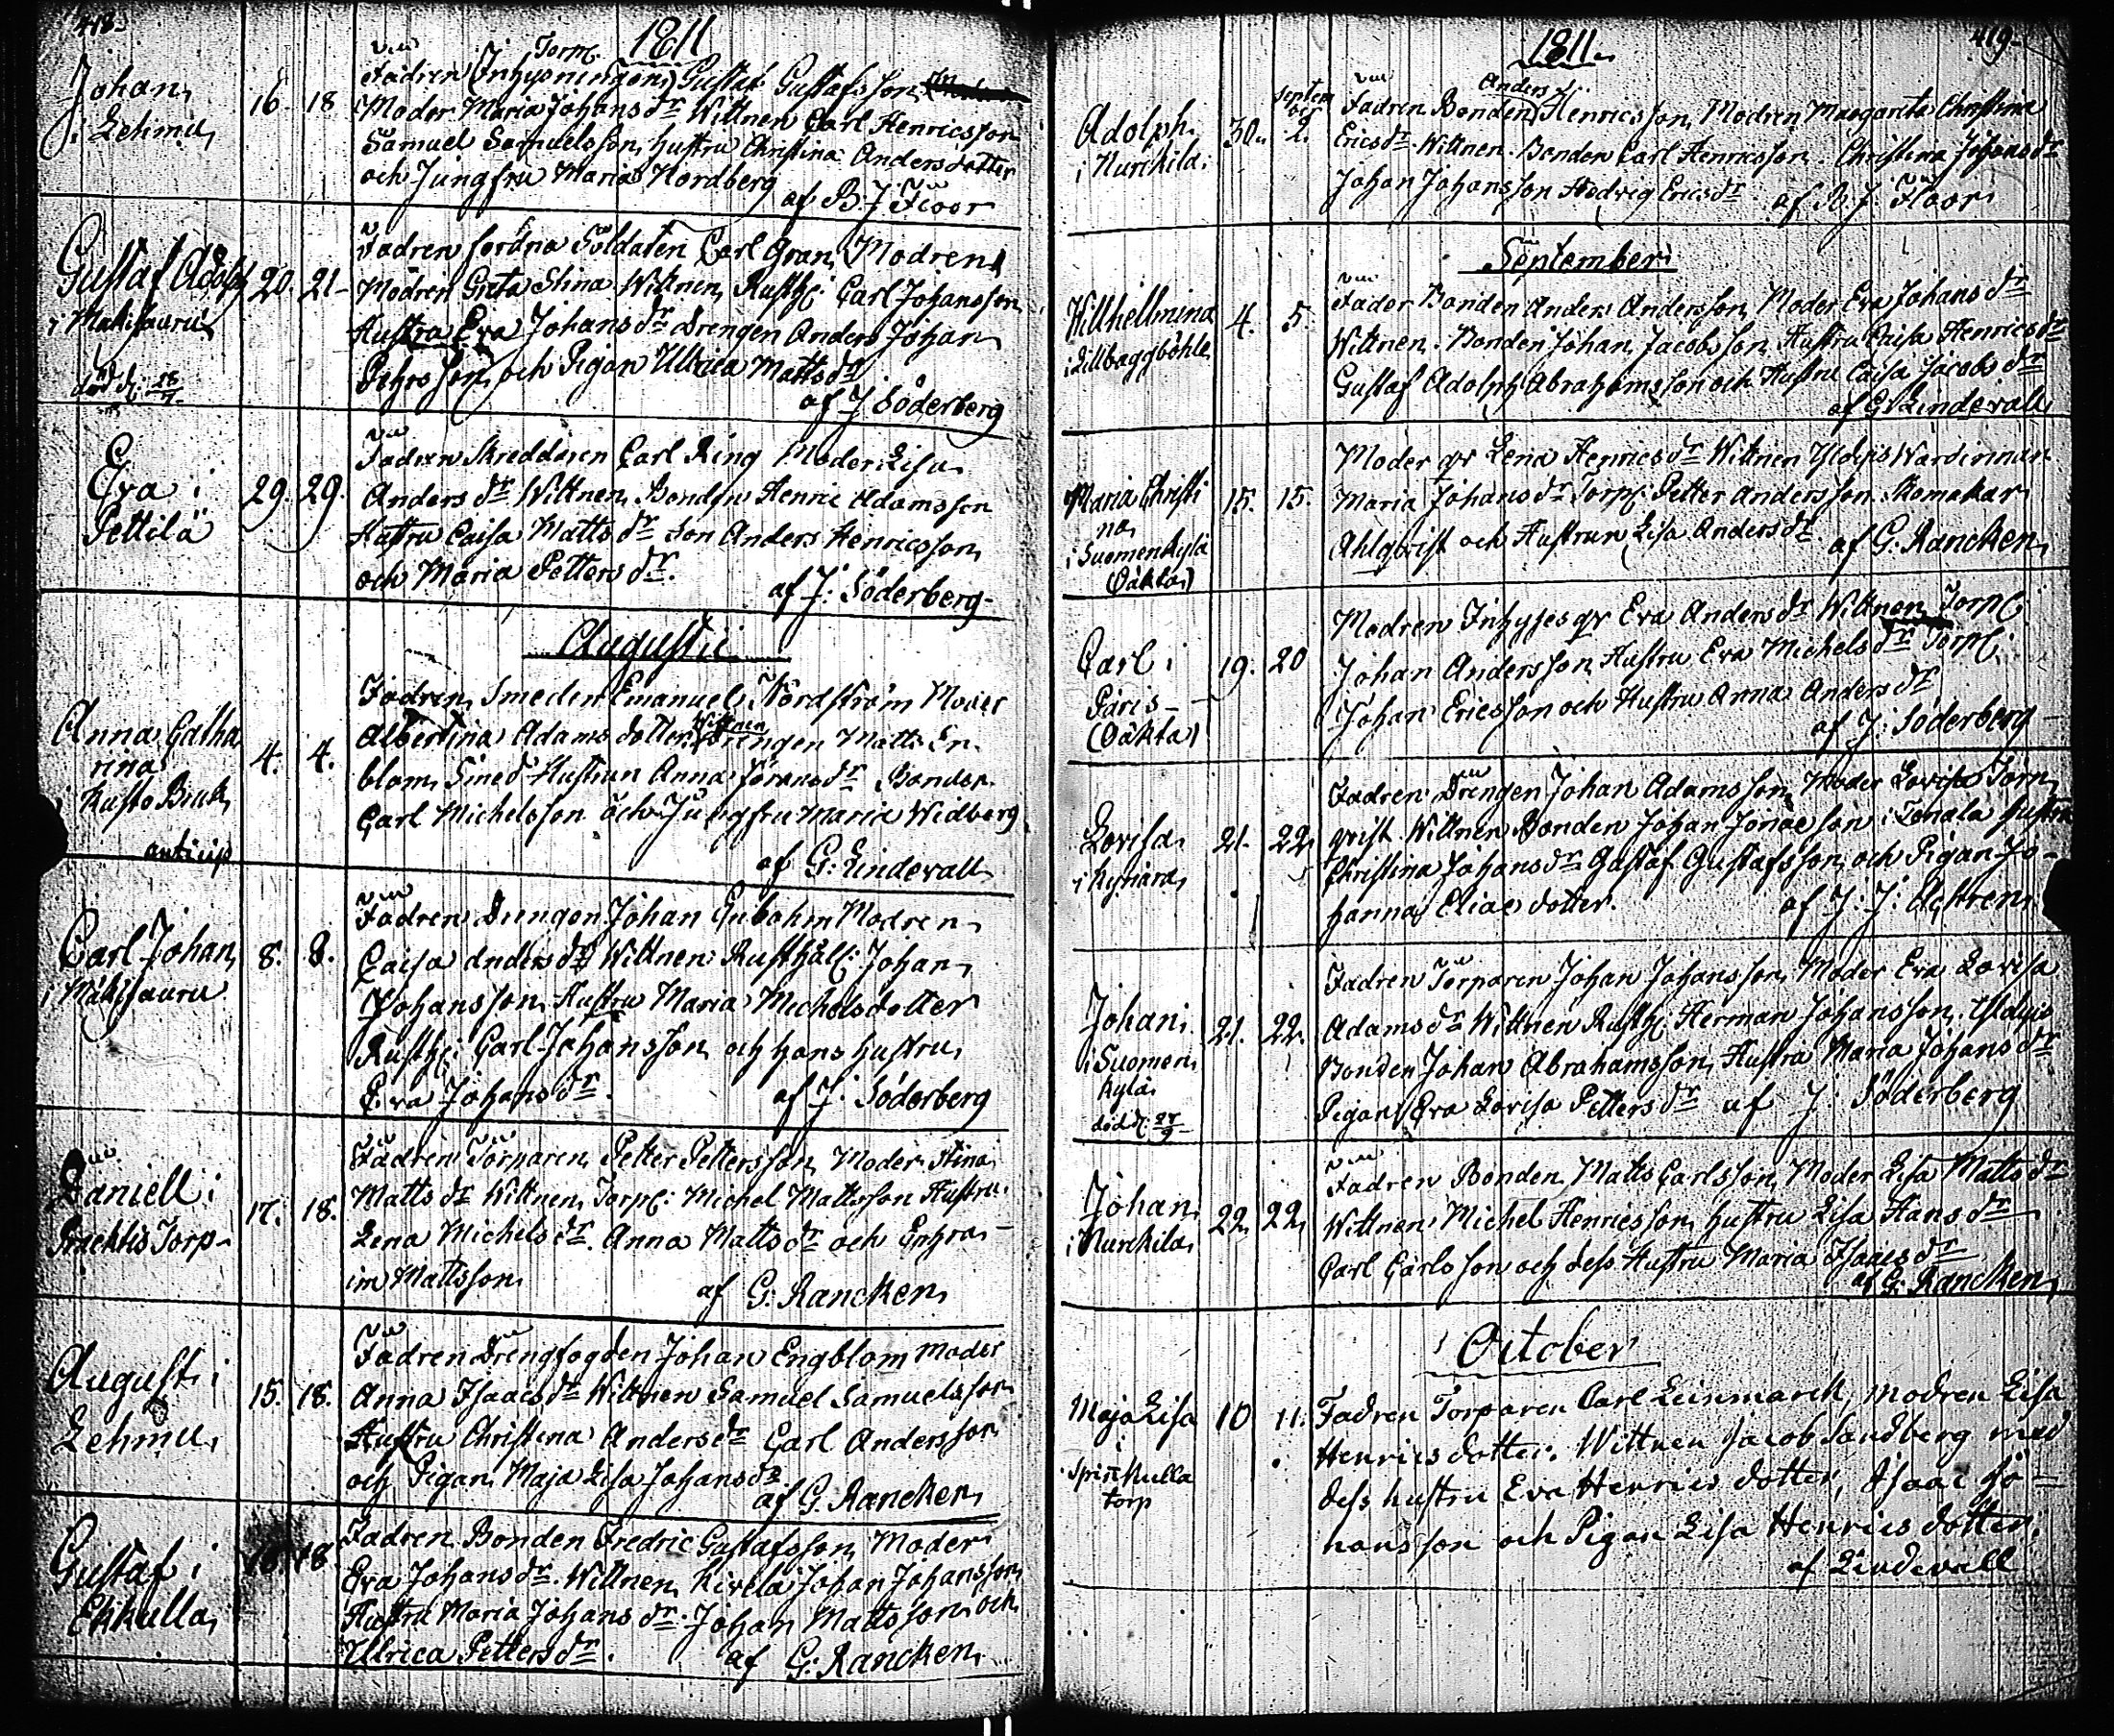 418.
1811
Johan i Lehmu 16. 18.
Torp.
Fadren Inhysningen Gustaf Gustafsson
Moder Maria Johans dr Wittnen Carl Henricsson
Samuel Samuelsson, hustru Christina Andersdotter
och Jungfru Maria Nordberg
af B. J. Floor
Gustaf Adolph i Makisauru 20. 21.
död d. 28/7
Fadren fordna Soldaten Carl Gran, Modren
Modren Greta Stina Wittnen, Rusth: Carl Johansson
Hustru Eva Johans dr Drengen Anders Johan
Pehrsson, och Pigan Ulrica Matts dr
af J Söderberg
Eva i Pettilä 29. 29.
Fadren Skreddaren Carl Ring Moder Lisa
Anders dr Wittnen, Bonden Henric Adamsson
Hustru Caisa Matts dr Son Anders Henricsson
och Maria Petters dr.
af J: Söderberg
Augustii
Anna Catharina i Kusto Bruk 4. 4.
anticip
Fadren Smeden Emanuel Nordström Moder
Albertina Adams dotter, Wittnen Drengen Matts En-
blom, Smed Hustrun Anna Görans dr Bonden
Carl Michelsson och Jungfru Maria Widberg
af G: Lindevall
Carl Johan i Mäkisauru 8. 8.
Fadren Drengen Johan Modren
Caisa Anders dr Wittnen Rusthåll: Johan
Johansson Hustru Maria Michelsdotter
Rusth: Carl Johansson och hans hustru
Eva Johans dr.
af J: Söderberg
Daniell i Torp 17. 18.
Fadren Torparen Petter Pettersson Moder Stina
Matts dr Wittnen, Torp: Michel Mattsson Hustru
Lena Michels dr. Anna Matts dr och Ephra-
im Mattsson
af G: Rancken
August i Lehmu 15. 18.
Fadren Drengfogden Johan Engblom Moder
Anna Isaacs dr Wittnen Samuel Samuelsson
Hustru Christina Anders dr Carl Andersson
och Pigan Maja Lisa Johans dr
af G. Rancken
Gustaf i Ekkulla 18. 18.
Fadren Bonden Fredric Gustafsson, Moder
Eva Johans dr. Wittnen, Johan Johansson
Hustru Maria Johans dr. Johan Mattsson och
Ulrica Petters dr.
af G: Rancken
419.
1811.
Adolph i Nurkkila 30. Septemb 2.
Fadren Bonden Anders Henricsson, Modren Margareta Christina
Erics dr. Wittnen. Bonden Carl Henricsson. Christina Johans dr
Johan Johansson Hedvig Erics dr
af B. J. Floor
September
Willhelmina i Lillbaggböhle 4. 5.
Fader Bonden Anders Andersson, Moder Eva Johans dr
Wittnen. Bonden Johan Jacobsson Hustru Caisa Henrics dr
Gustaf Adolph Abrahamsson och Hustru Caisa Jacobs dr
af G: Lindevall
Maria Christina i Suomenkylä (Oäkta) 15. 15.
Moder qv Lena Henrics dr Wittnen
Maria Johans dr Torp: Petter Andersson Skomakar
Ahlqvist och Hustrun Lisa Anders dr
af G. Rancken
Carl i Paris (Oäkta) 19. 20
Modren Inhyses qv Eva Anders dr Wittnen Torp:
Johan Andersson Hustru Eva Michels dr Torp:
Johan Ericsson och Hustru Anna Anders dr
af J: Söderberg
Lovisa i Kynarä 21. 22.
Fadren Drengen Johan Adamsson Moder Lovisa Torn-
qvist. Wittnen Bonden Johan Jonaeson i Hustru
Christina Johans dr Gustaf Gustafsson och Pigan Jo-
hanna Eliae dotter.
af J: J:
Johan i Suomenkylä 21. 22.
död d. 27/9
Fadren Torparen Johan Johansson Moder Eva Lovisa
Adams dr Wittnen Rusth: Herman Johansson,
Bonden Johan Abrahamsson, Hustru Maria Johans dr
Pigan Eva Lovisa Petters dr af J: Söderberg
Johan i Nurkkila 22. 22.
Fadren Bonden Matts Carlsson, Moder Lisa Matts dr
Wittnen Michel Henricsson, hustru Lisa Hans dr
Carl Carlsson och dess Hustru Maria Isaacs dr
af G: Rancken
October
Maja Lisa i Spirikulla torp 10 11.
Fadren Torparen Carl Leinmarck, modren Lisa
Henrics dotter. Wittnen Jacob Sandberg med
dess hustru Eva Henrics dotter, Isaac Jo=
hansson och Pigan Lisa Henrics dotter.
af Lindevall